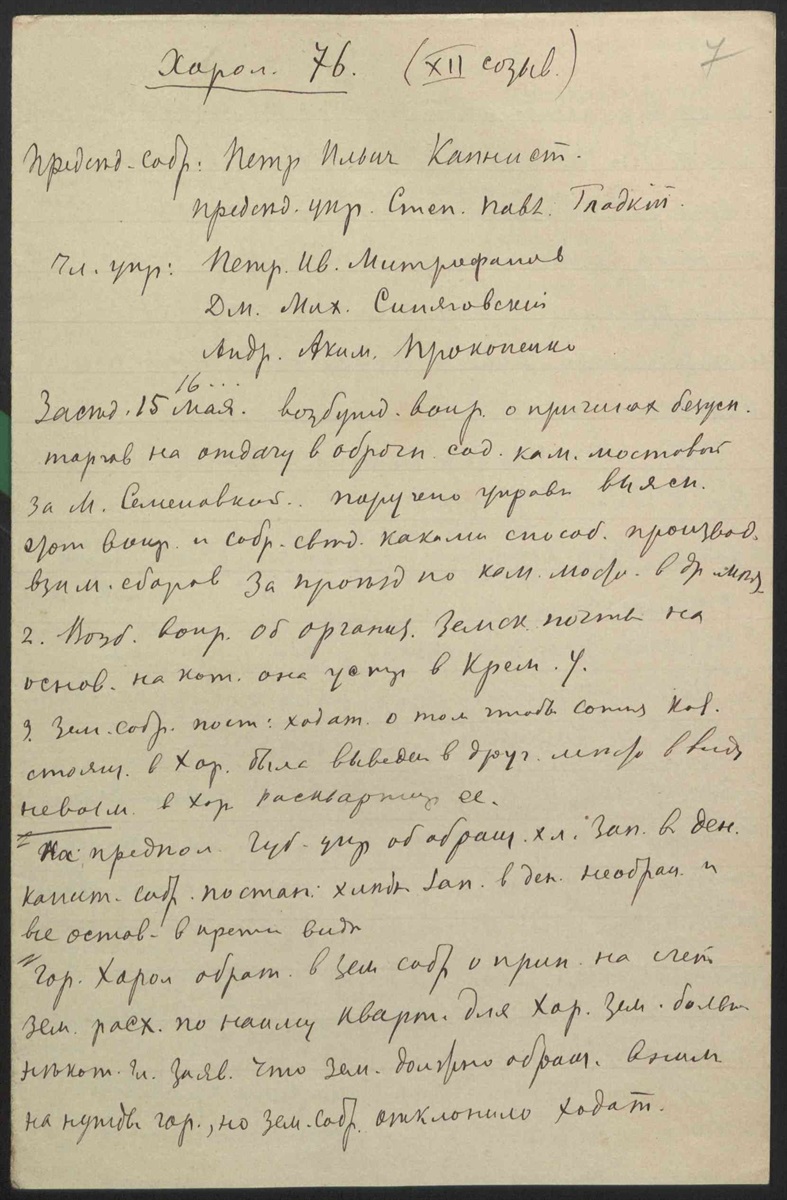 Харол. 76. (XII созыв.)
7
Предсѣд. собр: Петр Ильич Капнист.
предсѣд. упр. Степ. Павл. Гладкій.
Чл. упр: Петр. Ив. Митрофанов
Дм. Мих. Синяговскій
Андр. Аким. Прокопенко
16...
Засѣд. 15 мая. возбужд. вопр. о причинах безусп.
торгов на отдачу в оброчн. сод. кам. мостовой
за м. Семеновкой.. поручено управѣ выясн.
этот вопр. и собр. свѣд. какими способ. производ.
взим. сборов за проѣзд по кам. мост. в др. мѣст.
2. Возб. вопр. об организ. земск. почты на
основ. на кот. она устр в Крем. у.
3. Зем. собр. пост: ходат. о том чтобы сотня каз.
стоящ. в Хар. была выведен в друг. мѣсто в виду
невозм. в Хор расквартир ее.
На предпол. Губ. упр об обращ. хл. зап. в ден.
капит. собр. постан: хлѣбн зап. в ден. необращ. и
все остав. в преж видѣ
Гор. Харол обрат. в зем собр о прин. на счет
зем. расх. по найму кварт. для Хар. зем. больн
нѣкот. гл. заяв. что зем. должно обращ. вним
на нужды гор., но зем. собр. отклонило ходат.